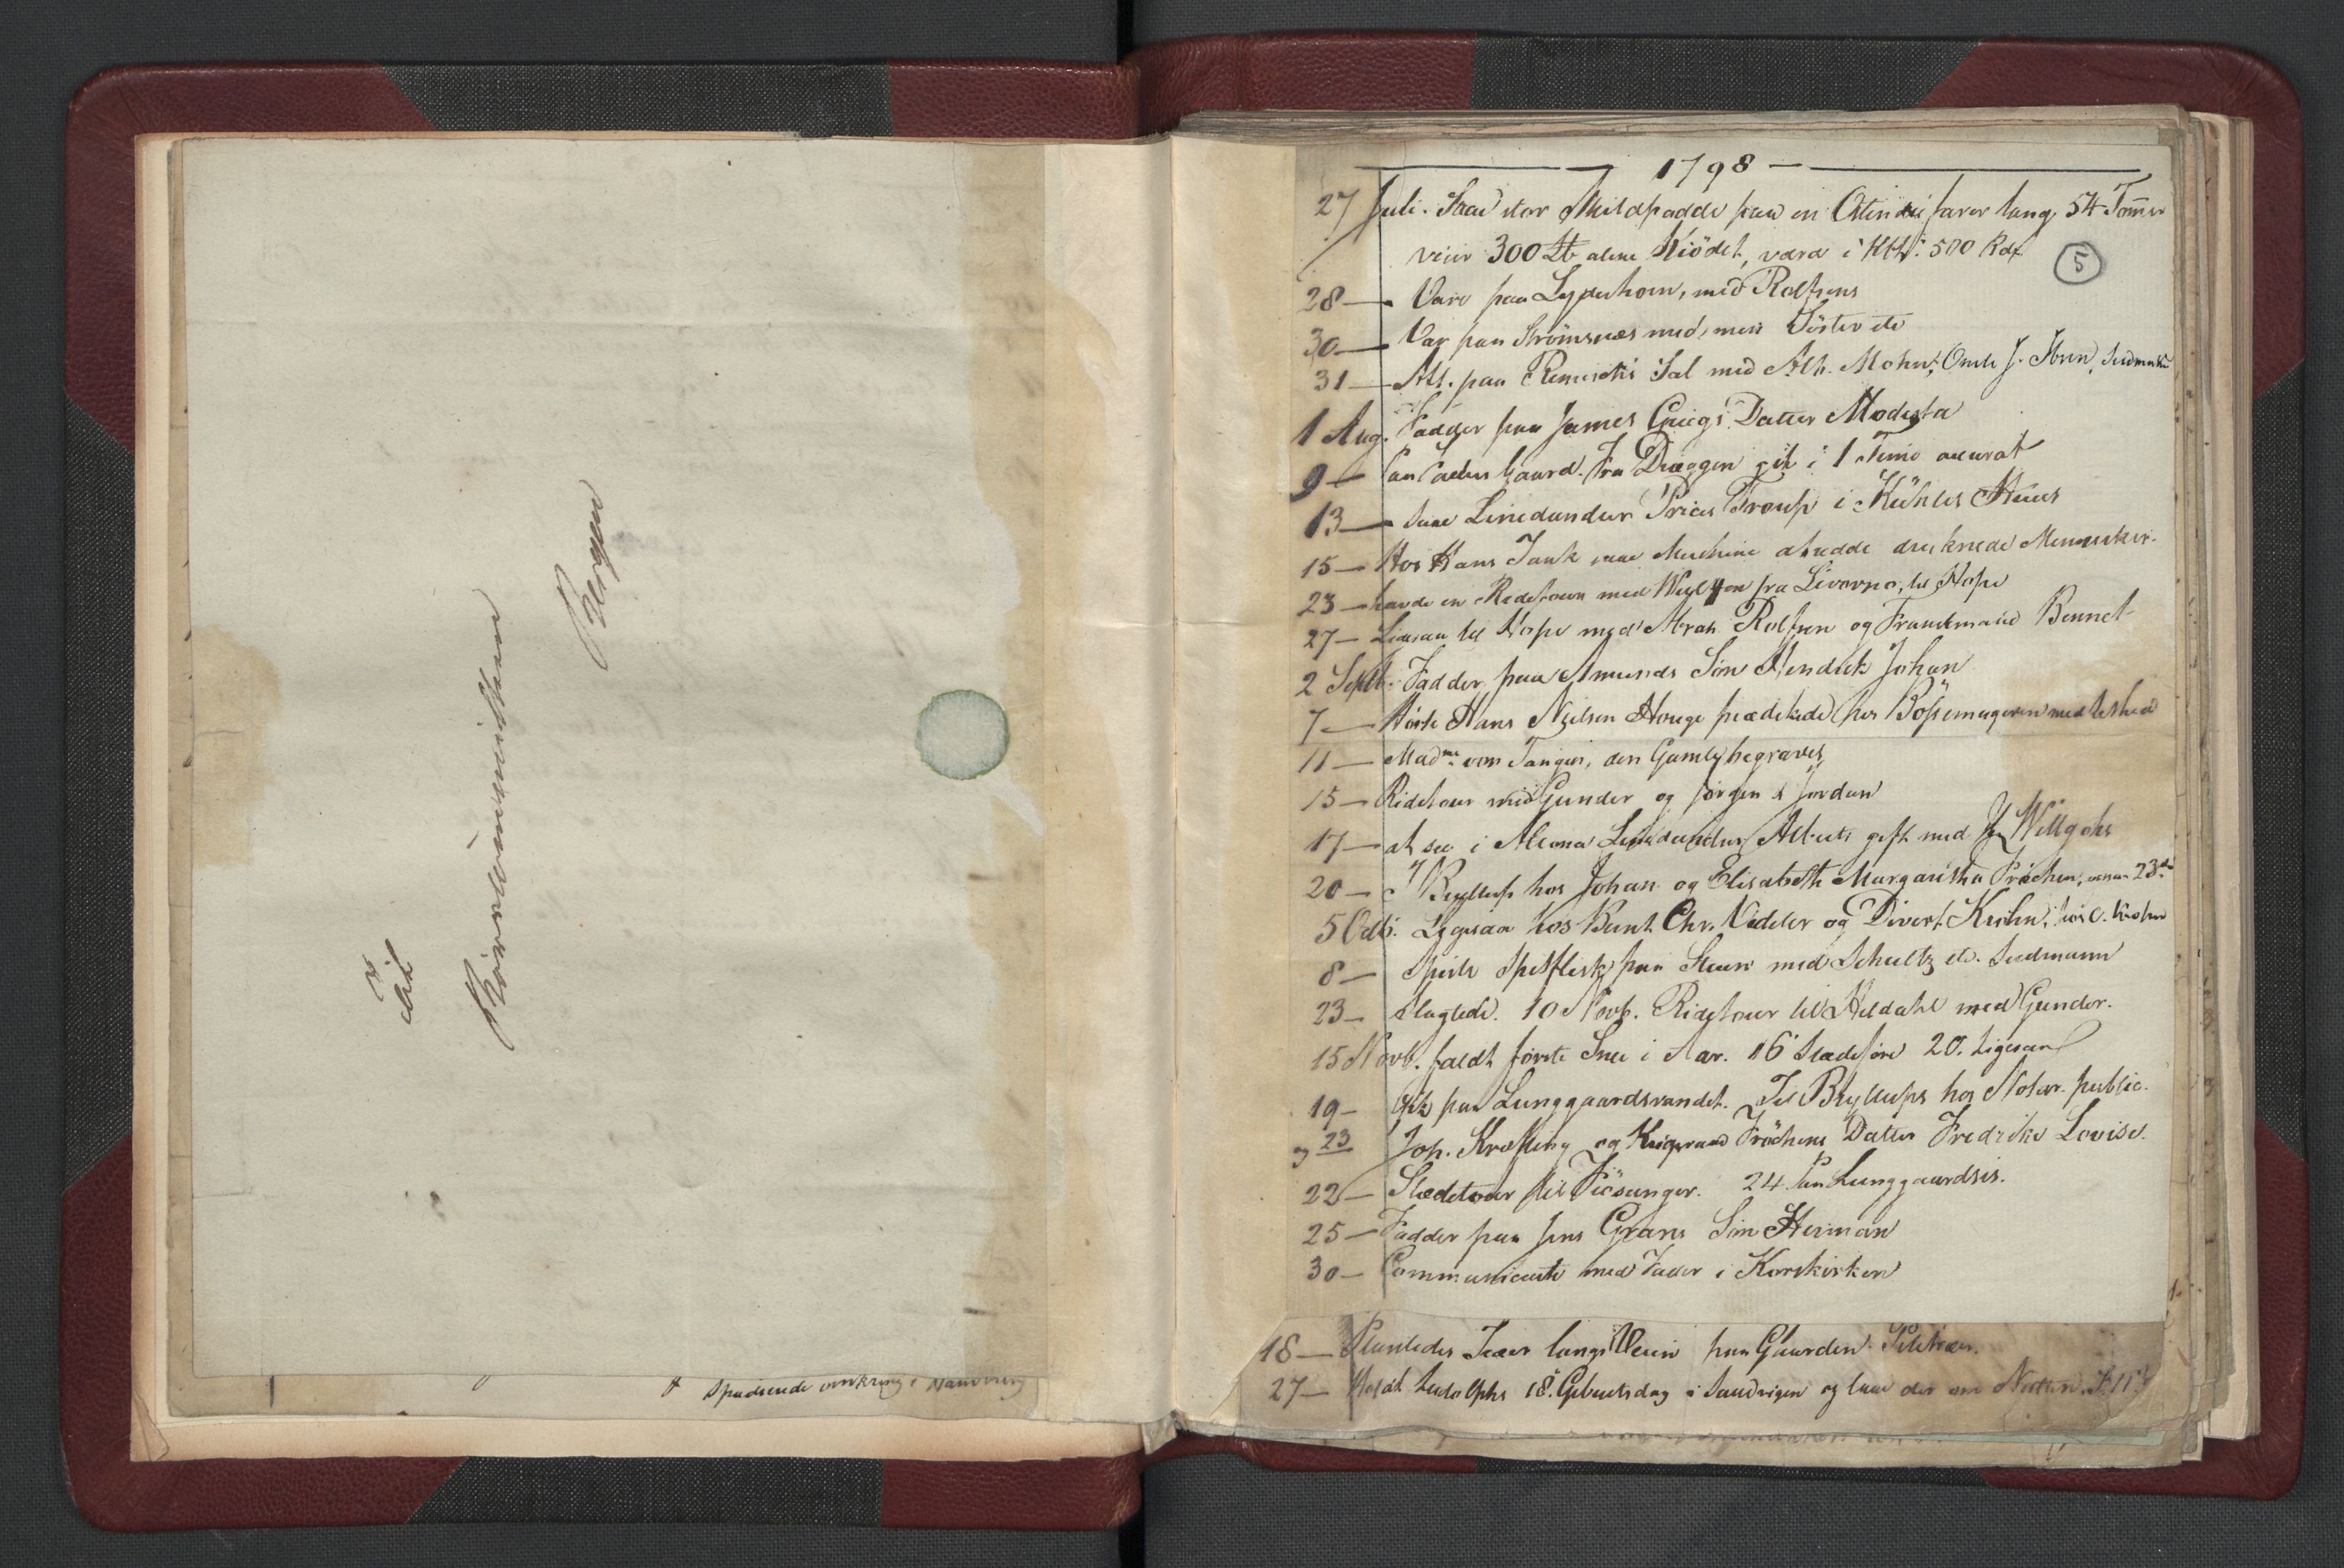 Til
Börsecommiteen
Bergen
spadserende omkring i
1798
27 Juli. Saae stor Skildpadde paa en Ostindiefarer lang 54 Tom̄er
veier 300 ℔ alene Kiödet, værd i Kbh: 500 Rdr
5
28 — Vare paa Lyderhorn, med Rolfsens
30 — Var paa Strömsnæs med min Söster etc
31 — All. paa Sal med Alb. Mohn, Onkle J. Ibsen,
1 Aug. Fadder paa James Griegs Datter Modesta
9 — Gaard. Fra Dræggen gik i 1 Time accurat
13 — Saae Linedandser Prices Troup i Kühles Huus
15 — Hos Hans Tank saae Machine at redde druknede Mennesker.
23 — havde en Ridetour med fra Livorno, til Hope
27 — Ligesaa til Hope med Abrah Rolfsen og Bennet
2 Septb. Fadder paa Amunds Sön Hendrik Johan
7 — Hörte Hans Nielsen Houge prædikede hos Bössemageren
11 — Madme von Tangen, den Gamle, begraves
15 — Ridetour med Gunder og Jörgen s Jordan
17 — at see i Linedandser gift med Willgohs
20 — I Bryllup hos Johan og Elisabeth Margaretha Fröchen, 23de
5 Octb. Ligesaa hos Bernt Chr. Vedeler og Divert Krohn, hos C. Krohn
8 — Spiste Speflesk paa Steen med Schultz etc. Sudmann
23 — slagtede. 10 Novb. Ridetour til Heldahl med Gunder.
15 Novb. faldt förste Snee i Aar. 16 Slædeföre 20. ligesaa
19 — Gik paa Lunggaardsvandet. Til Bryllups hos Notar. public.
og 23 Joh. Krefting og Krigsraad Fröchens Datter Fredrike Lovise.
22 — Slædetour til Fiösanger. 24 paa Lunggaardsis.
25 — Fadder paa Jens Grans Sön Herman
30 — Communicerte med Fader i Korskirken
18 — Plantedes Træer langs Veien paa Gaarden Piletræer.
27 — Holdt Ludolphs 18. Geburtsdag i Sandvigen og laae der om Natten.